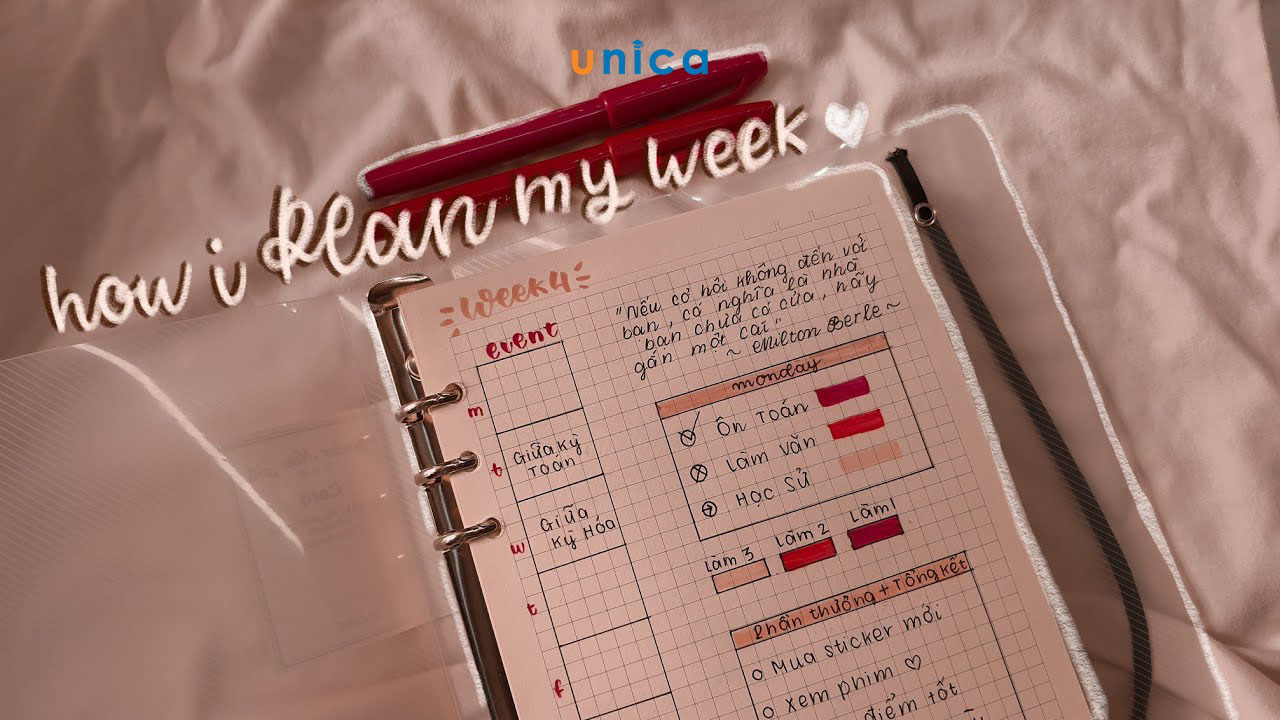 unica
how i plan my week
week 4
event
m
t
Giữa kỳ
Toán
w
Giữa
kỳ Hóa
t
f
"Nếu cơ hội không đến với
bạn, có nghĩa là nhà
bạn chưa có cửa, hãy
gắn một cái"
~ Milton Berle ~
monday
Ôn Toán
Làm Văn
Học Sử
Làm 3
Làm 2
Làm 1
Phần thưởng + Tổng kết
Mua sticker mới
xem phim
điểm tốt